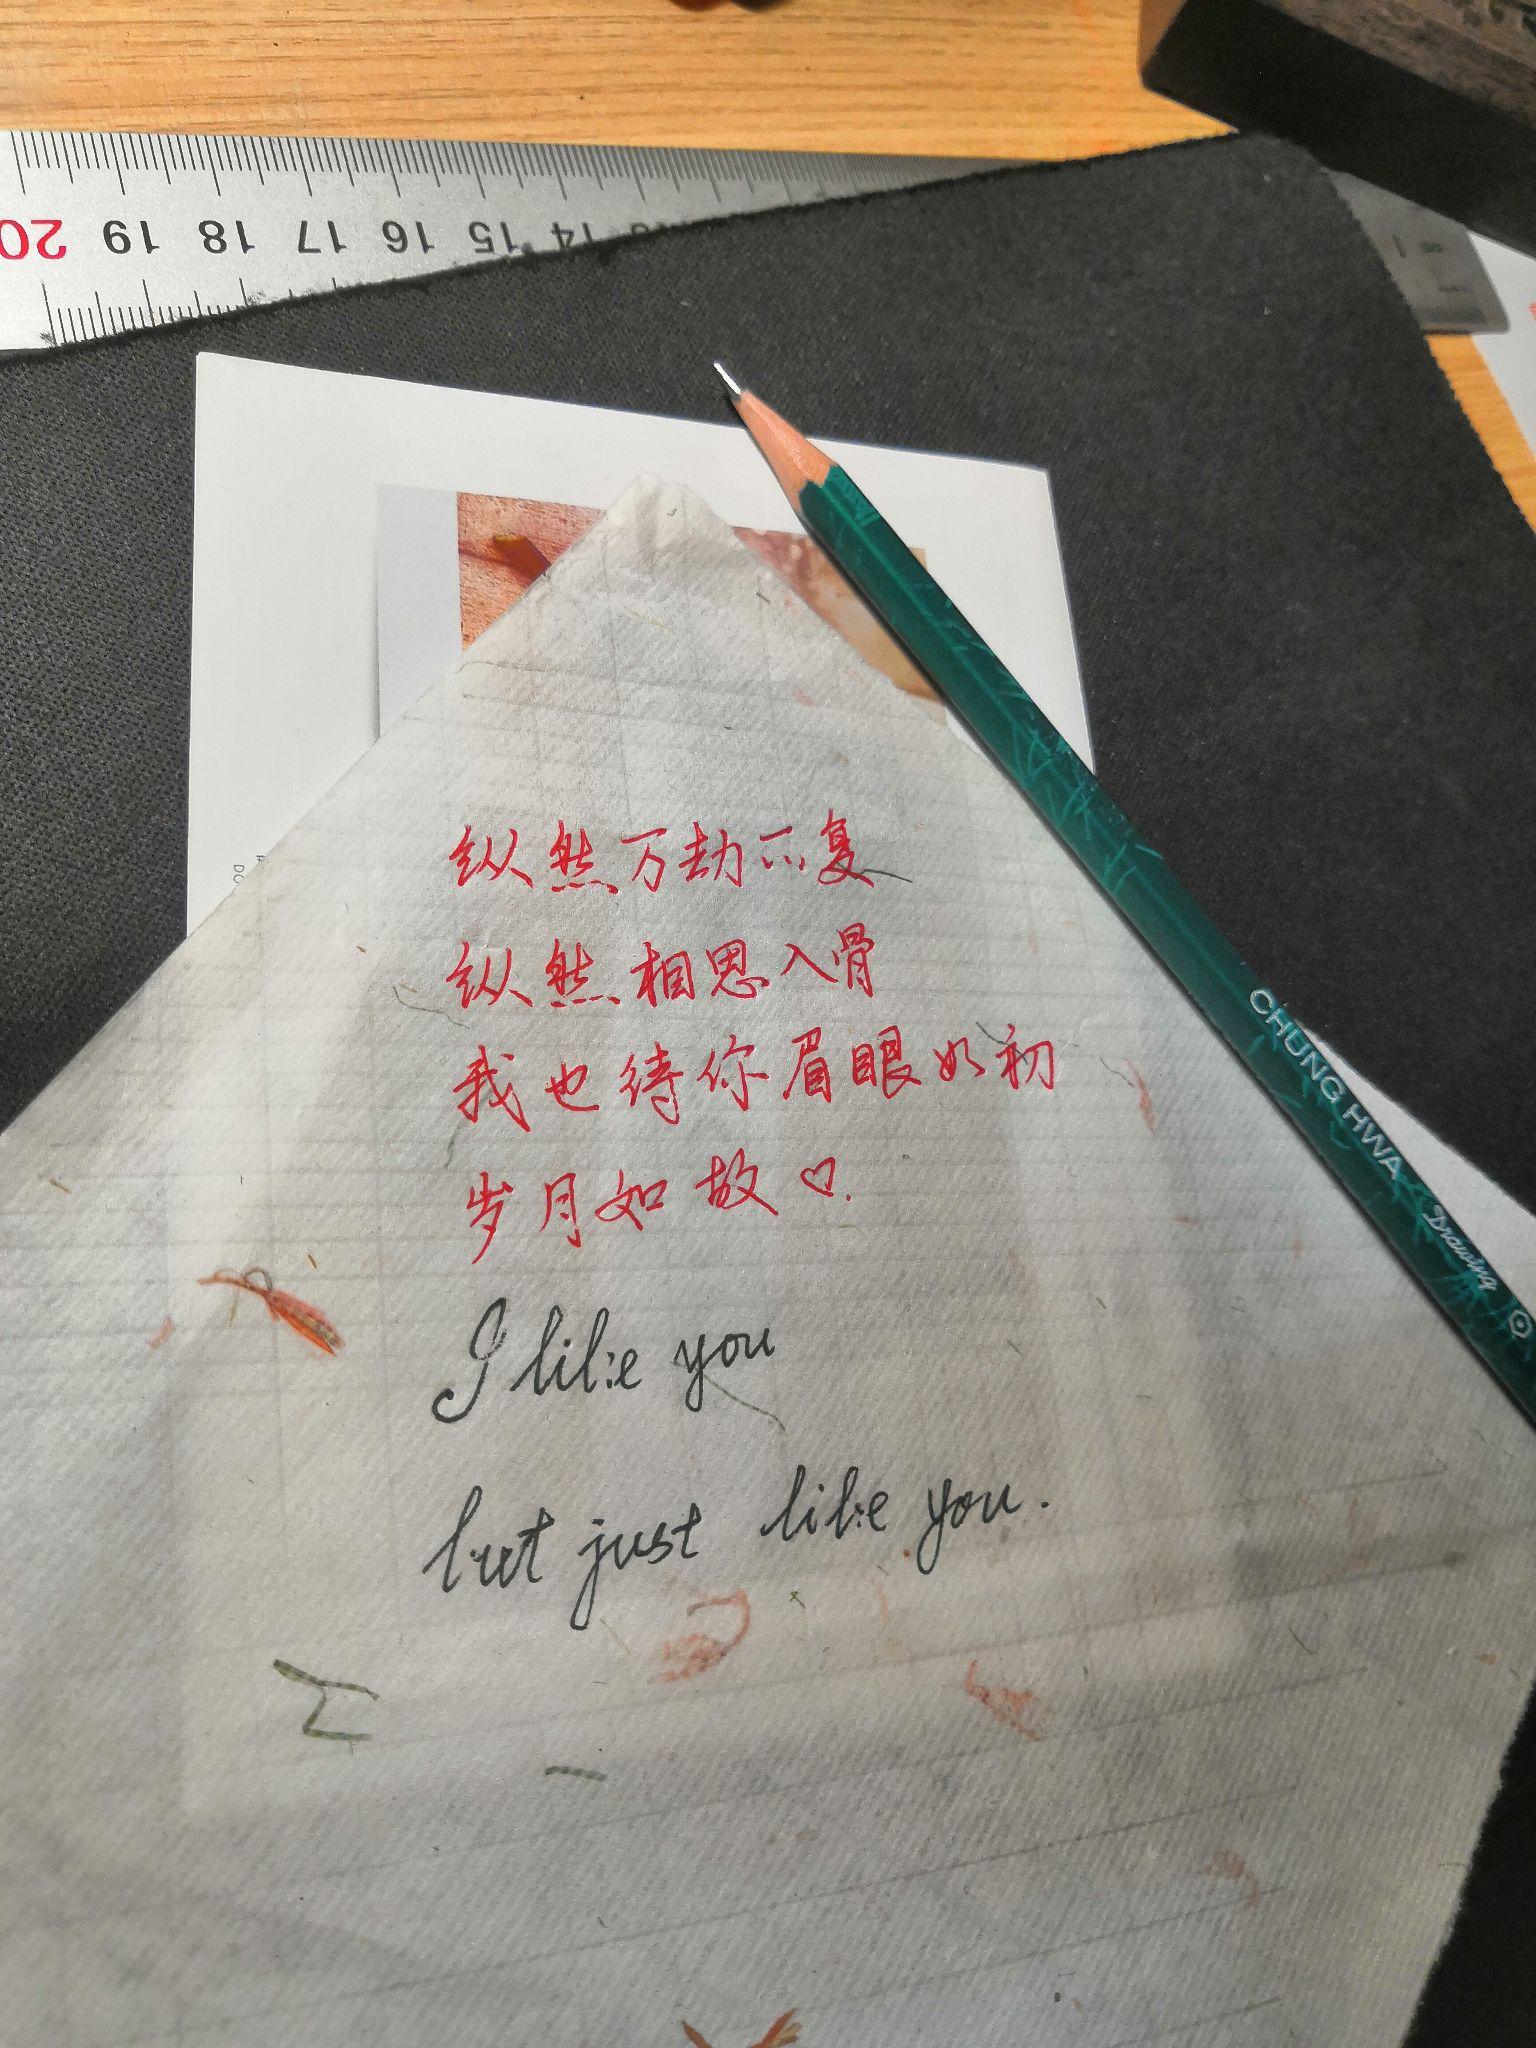 20 19 18 17 16 15 14
纵然万劫不复
纵然相思入骨
我也待你眉眼如初
岁月如故♡.
I like you
but just like you.
CHUNG HWA Drawing